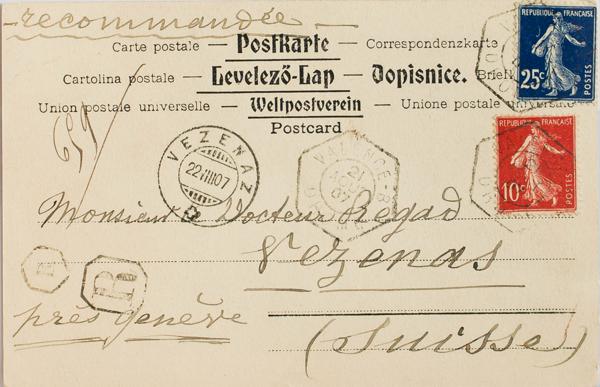 recommandée
REPUBLIQUE FRANÇAISE
25c
POSTES
Carte postale — Postkarte — Correspondenzkarte
Cartolina postale — Levelező-Lap — Dopisnice. Brief
Union postale universelle — Weltpostverein — Unione postale universale
Postcard
REPUBLIQUE FRANÇAISE
10c
POSTES
VEZENAZ
22 III 07
21
07
Monsieur Docteur Regad
Vezenas
R
R
près Genève
(Suisse)